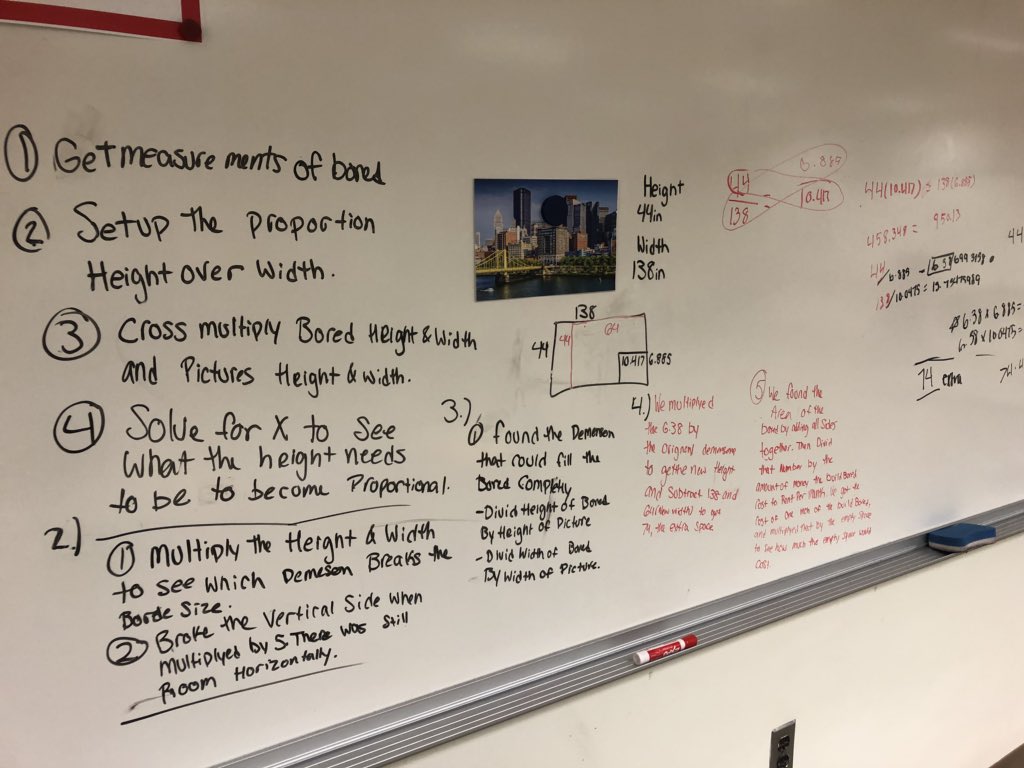 ① Get measurements of bored
② Setup the proportion
Height over Width.
③ Cross multiply Bored Height & Width
and Pictures Height & Width.
④ Solve for X to See
What the height needs
to be to become Proportional.
2.)
① Multiply the Height & Width
to see which Demesion Breaks the
Borde Size.
② Broke the Vertical Side when
multiplyed by 5. There was still
Room Horizontally.
Height
44in
Width
138in
138
44
44
64
10.417
6.885
3.)
① found the Demension
that could fill the
Bored Complety
- Divid Height of Bored
By Height of Picture
- Divid Width of Bored
By Width of Picture.
4.) We multiplyed
the 6.38 by
the original demension
to get the new Height
and Subtract 138 and
64 (new width) to get
74, the extra space
⑤ We found the
Area of the
bored by adding all sides
together. Then Divid
that number by the
amount of money the build Bored
Cost to Rent Per Month. We got the
Cost of one inch of the build Bored,
and multiplied that by the empty space
to see how much the empty space would
Cost.
44
138
6.885
10.417
44(10.417) = 138(6.885)
458.348 = 950.13
44/6.885 =
138/10.0475 =
6.38 x 6.885 =
6.38 x 10.0475 =
44
74 extra